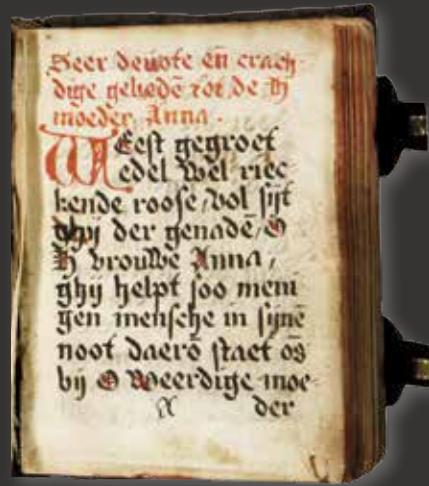 Seer devote en̄ crach-
dige gebedē tot de H
moeder Anna.
WEest gegroet
edel wel riec
kende roose, vol sijt
ghij der genadē, O
H vrouwe Anna,
ghij helpt soo meni
gen mensche in sijnē
noot daerō staet os̄
bij O weerdige moe-
A der